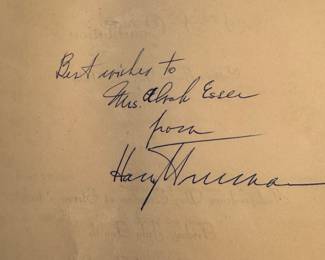 Best wishes to
Mrs. Alvah Essee
from
Harry Truman